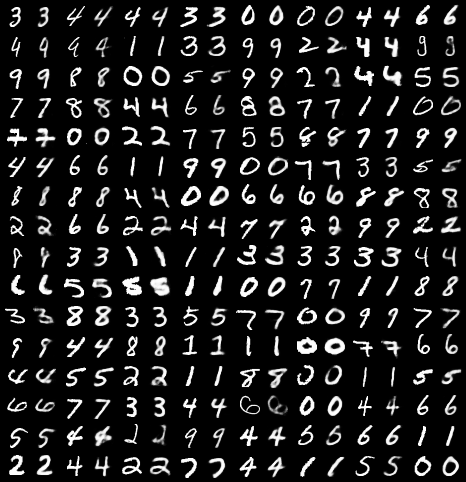 3 3 4 4 4 4 3 3 0 0 0 0 4 4 6 6
9 9 9 9 1 1 3 3 9 9 2 2 4 4 9 9
9 9 8 8 0 0 5 5 9 9 2 2 4 4 5 5
7 7 8 8 4 4 6 6 8 8 7 7 1 1 0 0
7 7 0 0 2 2 7 7 5 5 8 8 7 7 9 9
4 4 6 6 1 1 9 9 0 0 7 7 3 3 5 5
8 8 8 8 4 4 0 0 6 6 6 6 8 8 8 8
2 2 6 6 2 2 4 4 7 7 2 2 9 9 2 2
8 8 3 3 1 1 1 1 3 3 3 3 3 3 4 4
6 6 5 5 5 5 1 1 0 0 7 7 1 1 8 8
3 3 8 8 3 3 5 5 7 7 0 0 9 9 7 7
9 9 4 4 8 8 1 1 1 1 0 0 7 7 6 6
4 4 5 5 2 2 1 1 8 8 0 0 1 1 5 5
6 6 7 7 3 3 4 4 6 6 0 0 4 4 6 6
5 5 4 4 2 2 9 9 4 4 5 5 6 6 1 1
2 2 4 4 2 2 7 7 4 4 1 1 5 5 0 0